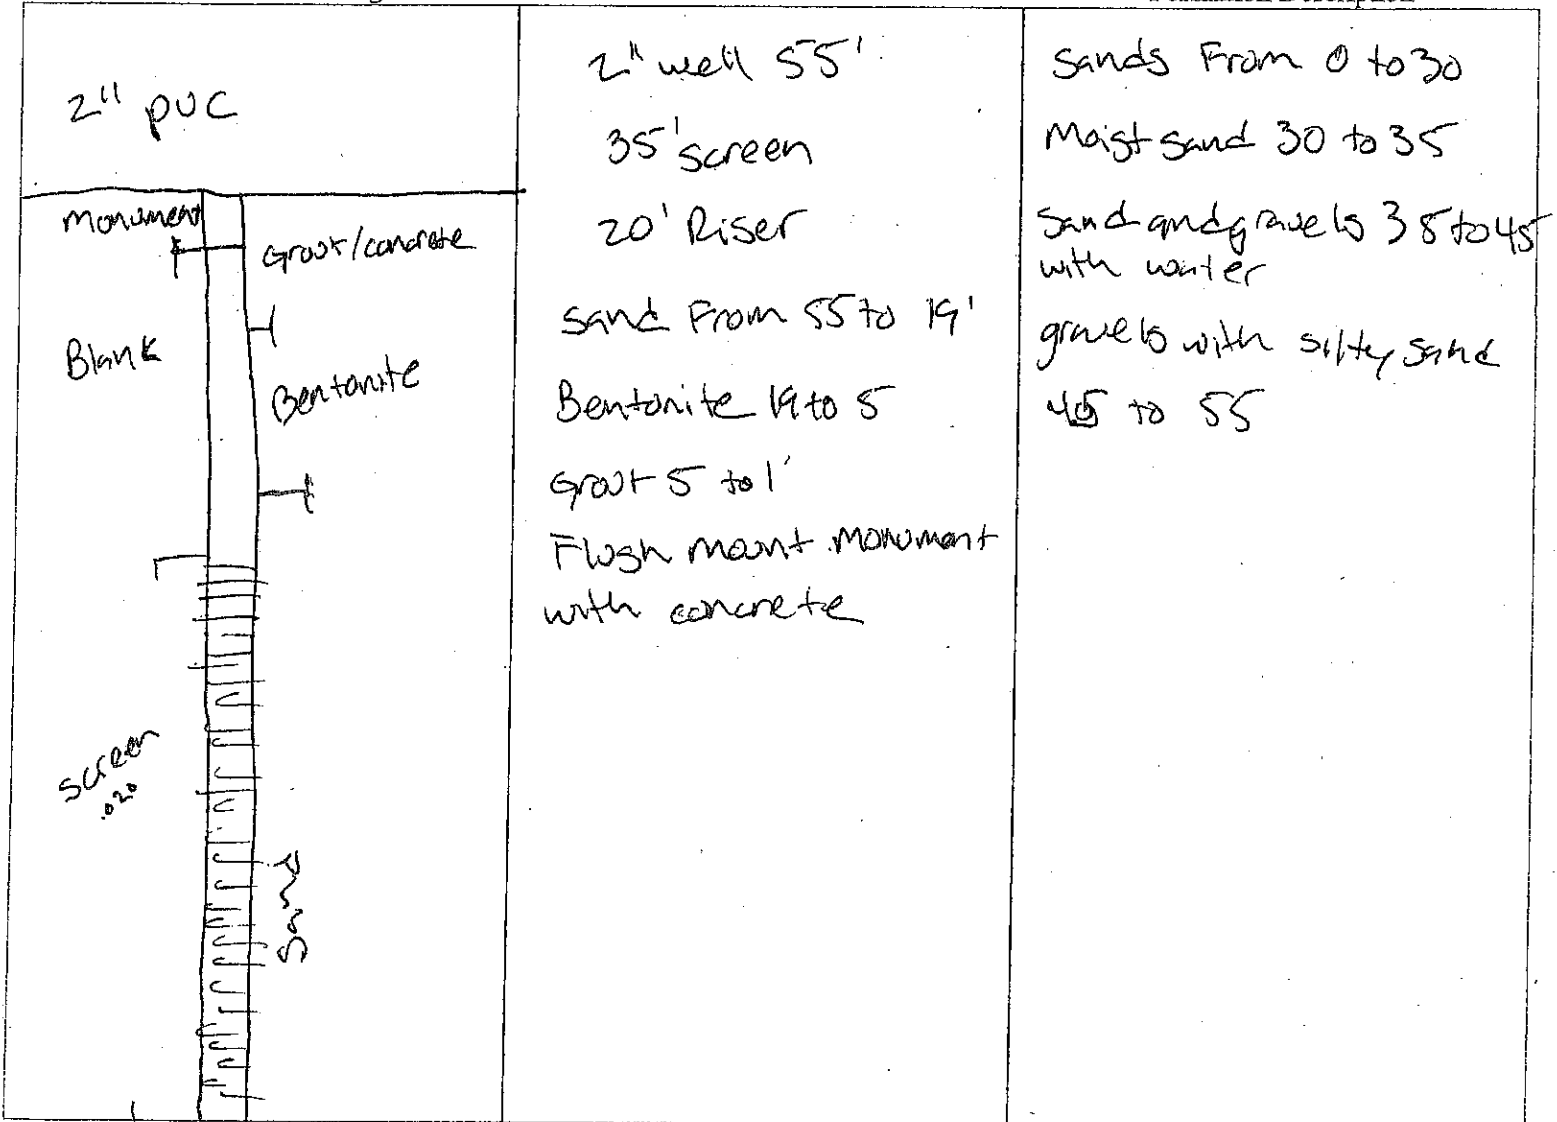 Formation Description
2" PVC
Monument
Grout/concrete
Blank
Bentonite
Screen
.020
Sand
2" well 55'
35' screen
20' Riser
Sand From 55 to 19'
Bentonite 19 to 5
Grout 5 to 1'
Flush mount Monument
with concrete
Sands From 0 to 30
Moist sand 30 to 35
Sand and gravels 35 to 45
with water
gravels with silty sand
45 to 55